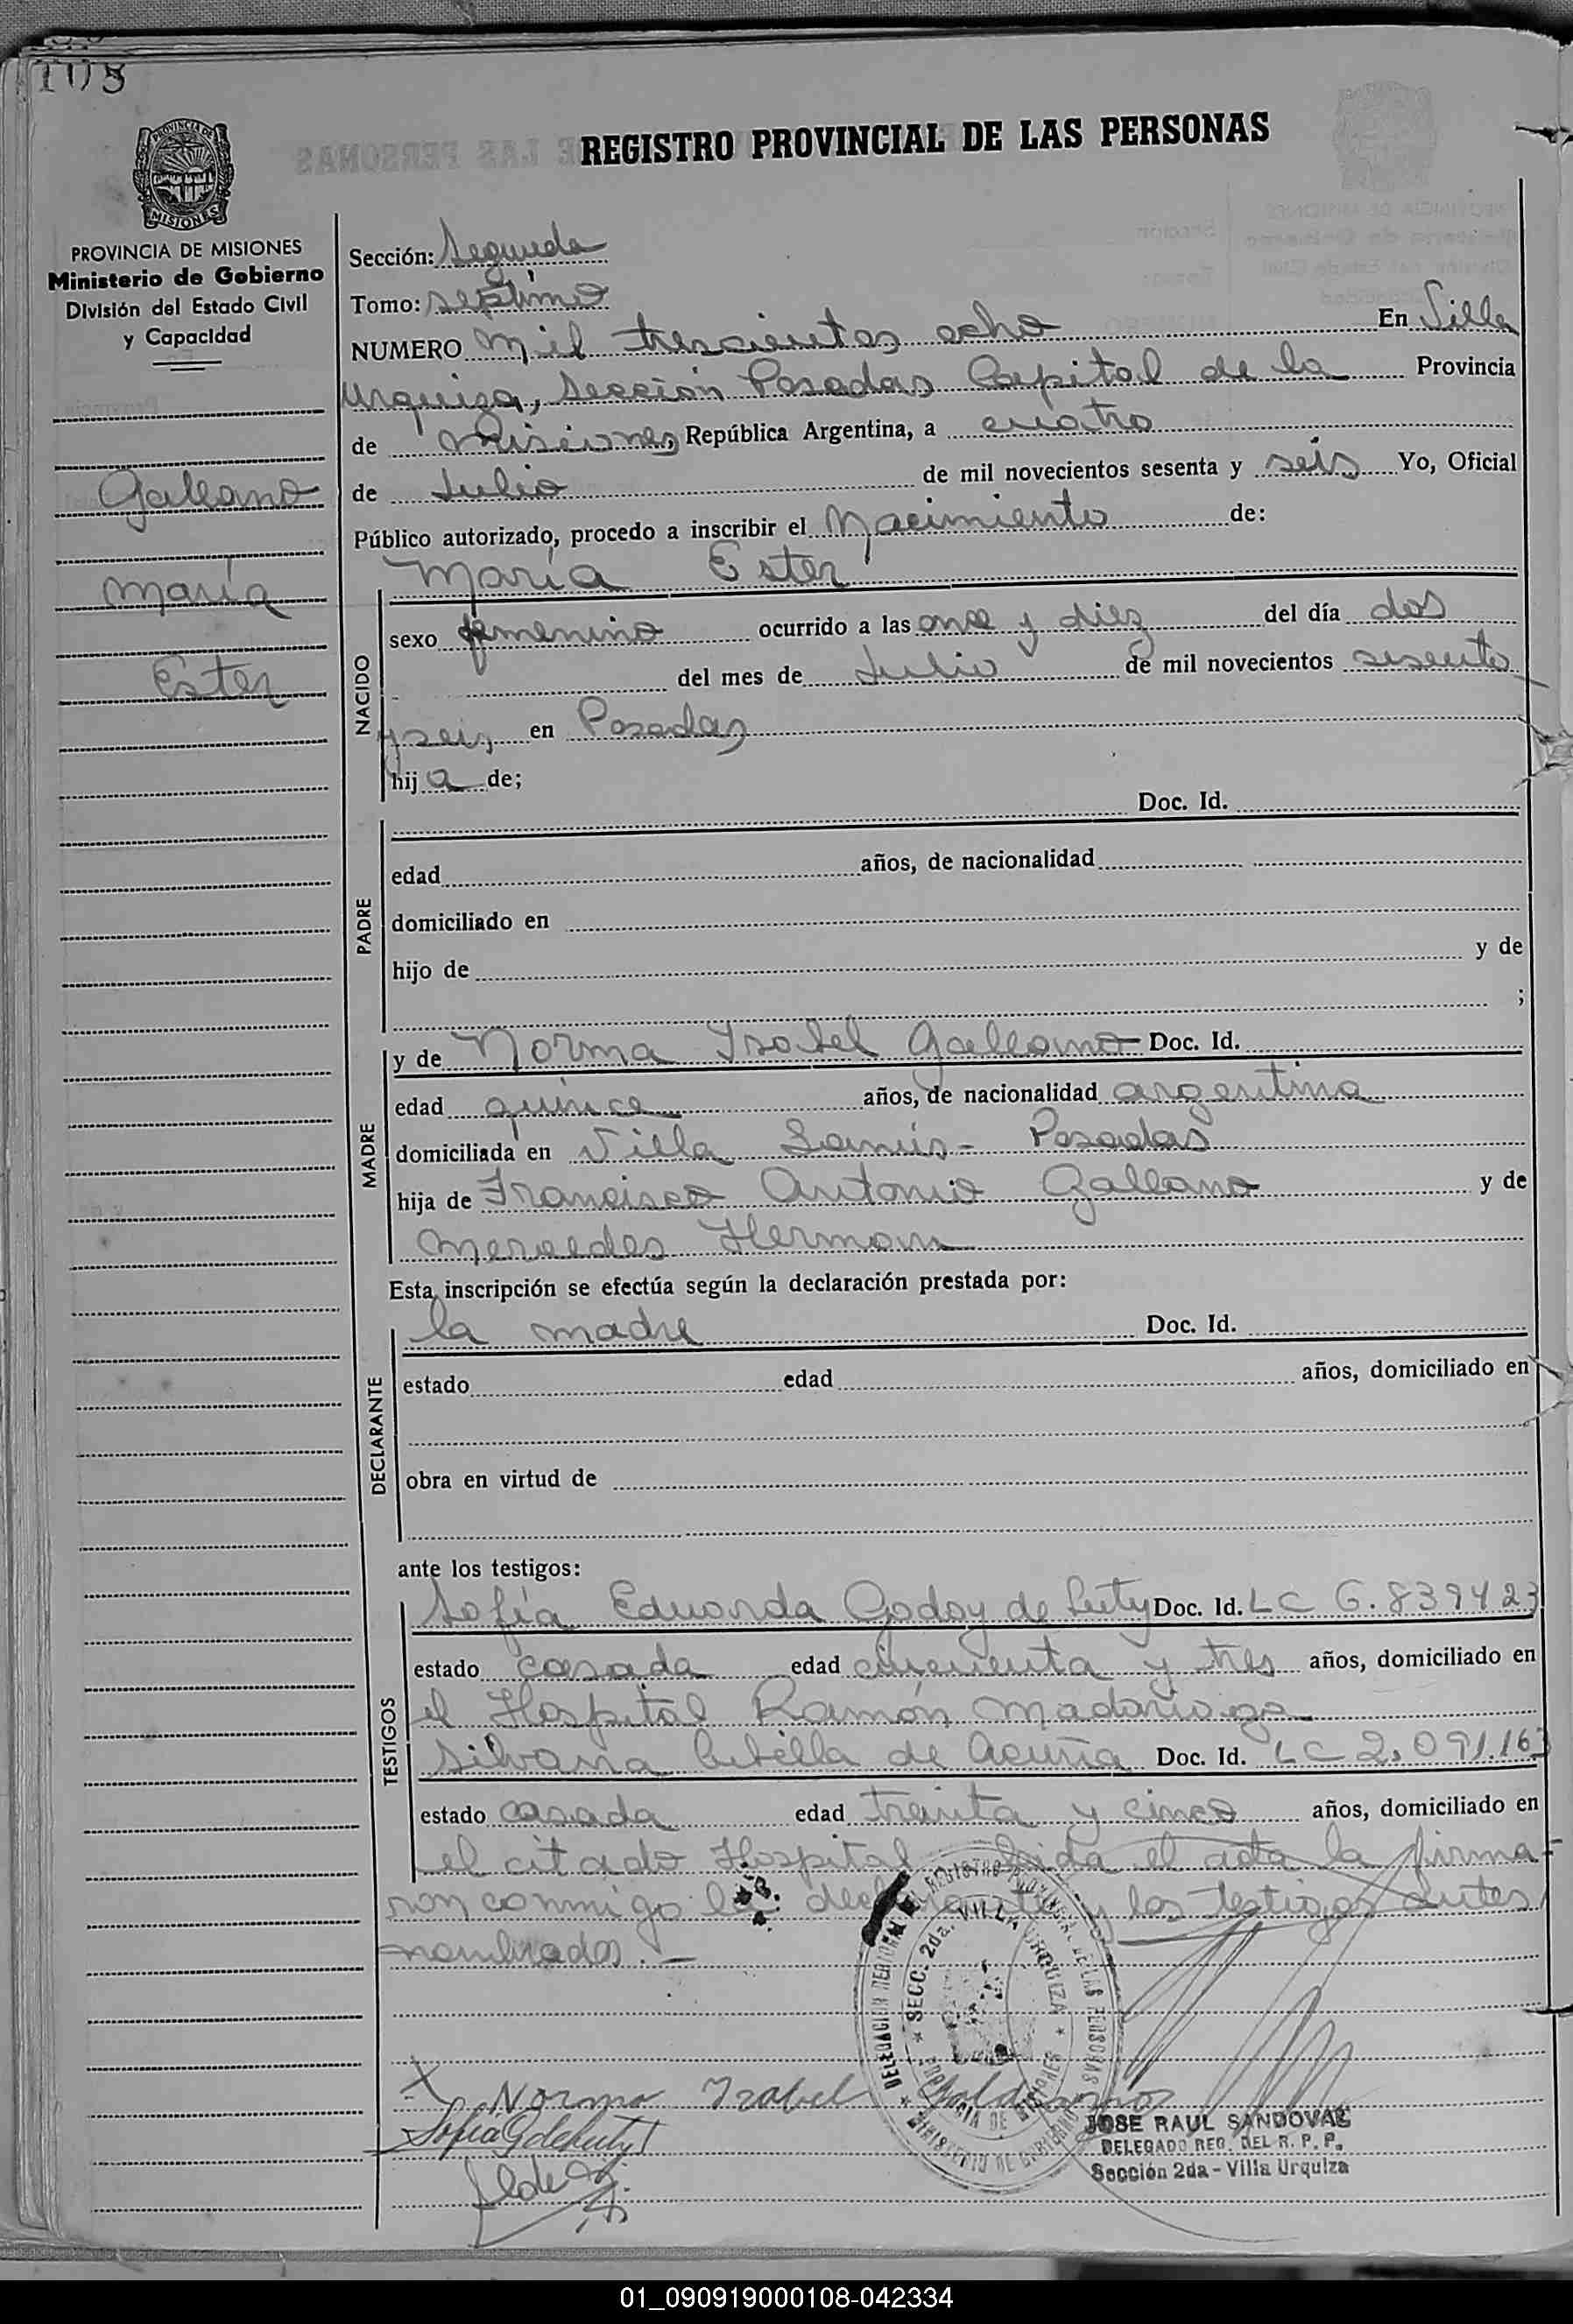 REGISTRO PROVINCIAL DE LAS PERSONAS
PROVINCIA DE
MISIONES
PROVINCIA DE MISIONES
Ministerio de Gobierno
División del Estado Civil
y Capacidad
Galeano
María
Ester
Sección: Segunda
Tomo: septimo
NUMERO mil trescientos ocho En Villa
Urquiza, Sección Posadas Capital de la Provincia
de Misiones, República Argentina, a cuatro
de Julio de mil novecientos sesenta y seis Yo, Oficial
Público autorizado, procedo a inscribir el Nacimiento de:
NACIDO
María Ester
sexo femenino ocurrido a las once y diez del día dos
del mes de Julio de mil novecientos sesenta
y seis en Posadas
hija de;
PADRE
Doc. Id.
edad años, de nacionalidad
domiciliado en
hijo de y de
;
MADRE
y de Norma Isabel Galeano Doc. Id.
edad quince años, de nacionalidad argentina
domiciliada en Villa Lanús - Posadas
hija de Francisco Antonio Galeano y de
Mercedes Hermann
Esta inscripción se efectúa según la declaración prestada por:
DECLARANTE
la madre Doc. Id.
estado edad años, domiciliado en
obra en virtud de
ante los testigos:
TESTIGOS
Sofía Eduarda Godoy de Doc. Id. LC 6.839423
estado casada edad cincuenta y tres años, domiciliado en
el Hospital Ramón Madariaga
Silvana de Acuña Doc. Id. LC 2.091.163
estado casada edad treinta y cinco años, domiciliado en
el citado Hospital leida el acta la firma-
ron conmigo la declarante y los testigos antes
nombrados.-
DELEGACION REGIONAL DEL REGISTRO PROVINCIAL DE LAS PERSONAS
SECC. 2da. VILLA URQUIZA
PROVINCIA DE MISIONES
MINISTERIO DE GOBIERNO
X Norma Izabel
JOSE RAUL SANDOVAL
DELEGADO REG. DEL R. P. P.
Sección 2da - Villa Urquiza
01_090919000108-042334